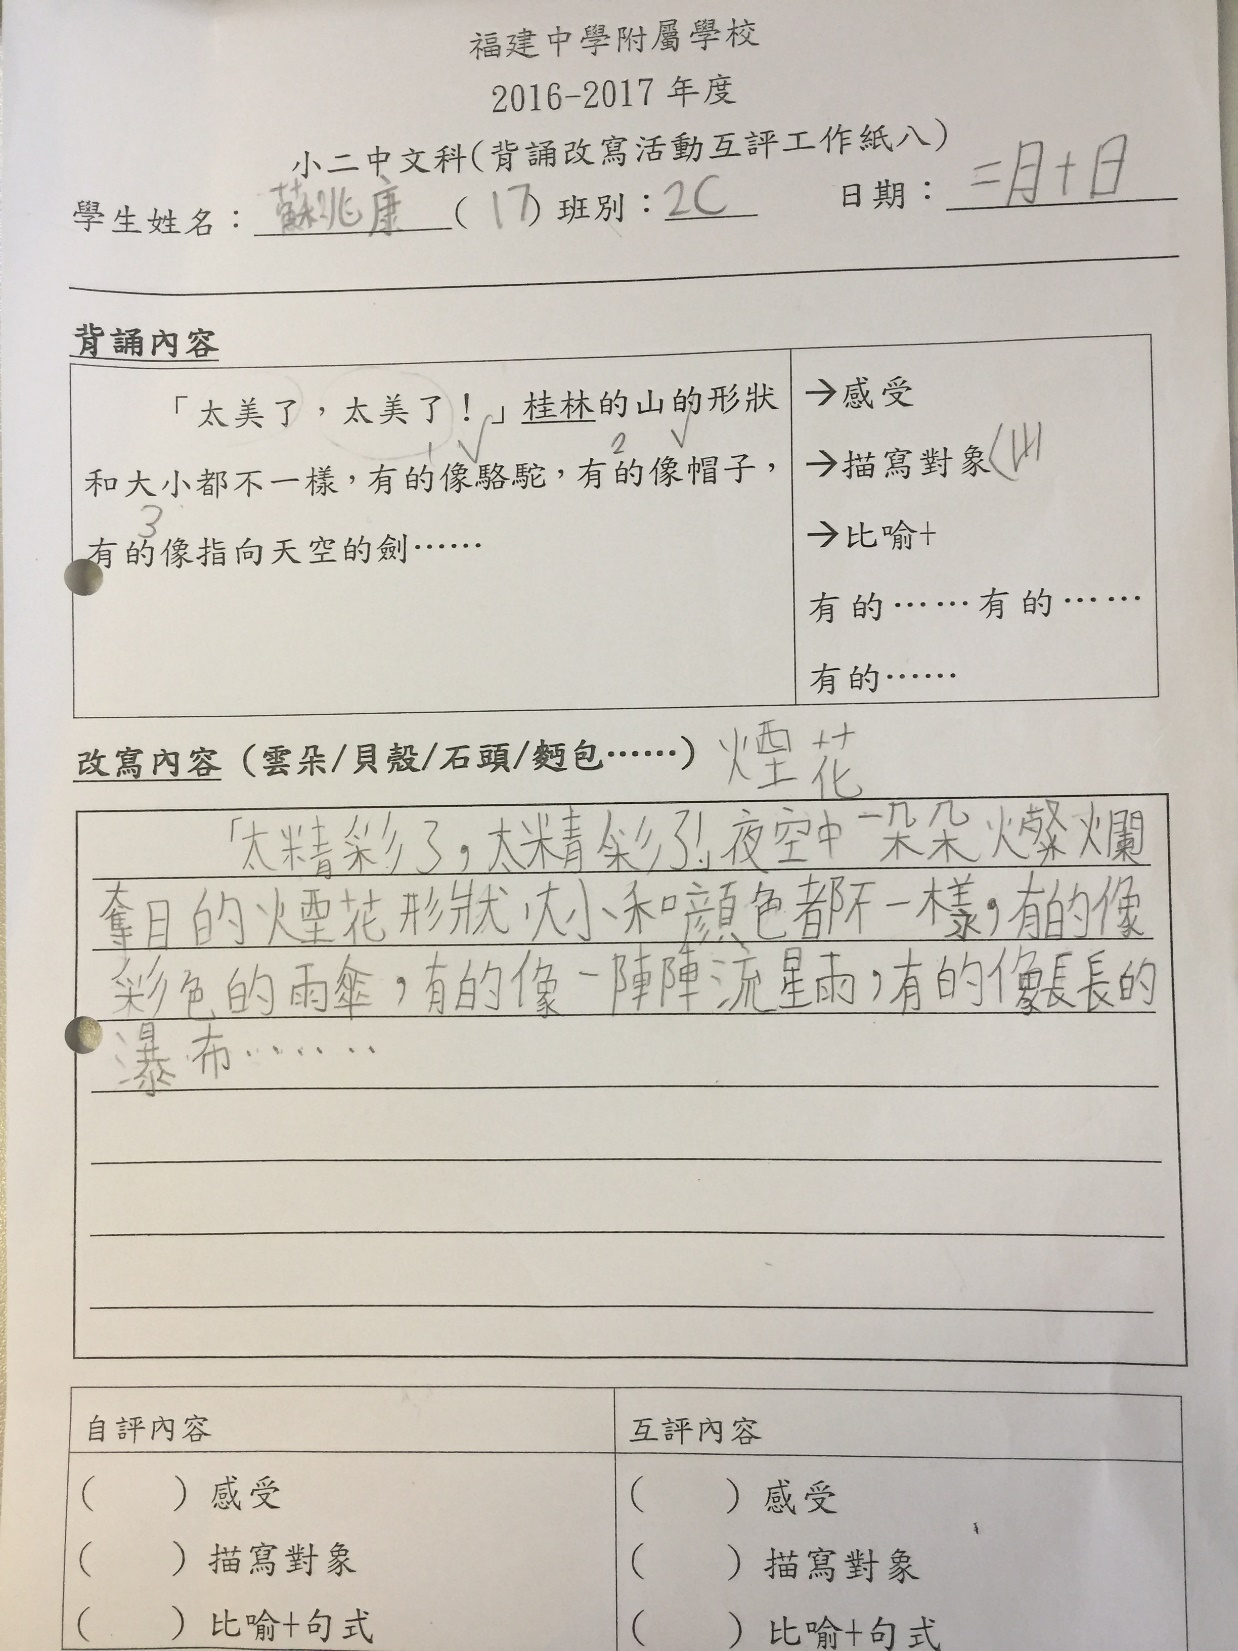 福建中學附屬學校
2016-2017 年度
小二中文科(背誦改寫活動互評工作紙八)
學生姓名：蘇兆康(17) 班別：2C 日期：三月十日
背誦內容
「太美了，太美了！」桂林的山的形狀
和大小都不一樣，有的像駱駝，有的像帽子，
有的像指向天空的劍……
1 2
3
→感受
→描寫對象(山
→比喻+
有的……有的……
有的……
改寫內容（雲朵/貝殼/石頭/麪包……）煙花
「太精彩了，太精彩了!」夜空中一朵朵燦爛
奪目的煙花形狀、大小和顏色都不一樣，有的像
彩色的雨傘，有的像一陣陣流星雨，有的像長長的
瀑布……
自評內容
( ) 感受
( ) 描寫對象
( ) 比喻+句式
互評內容
( ) 感受
( ) 描寫對象
( ) 比喻+句式